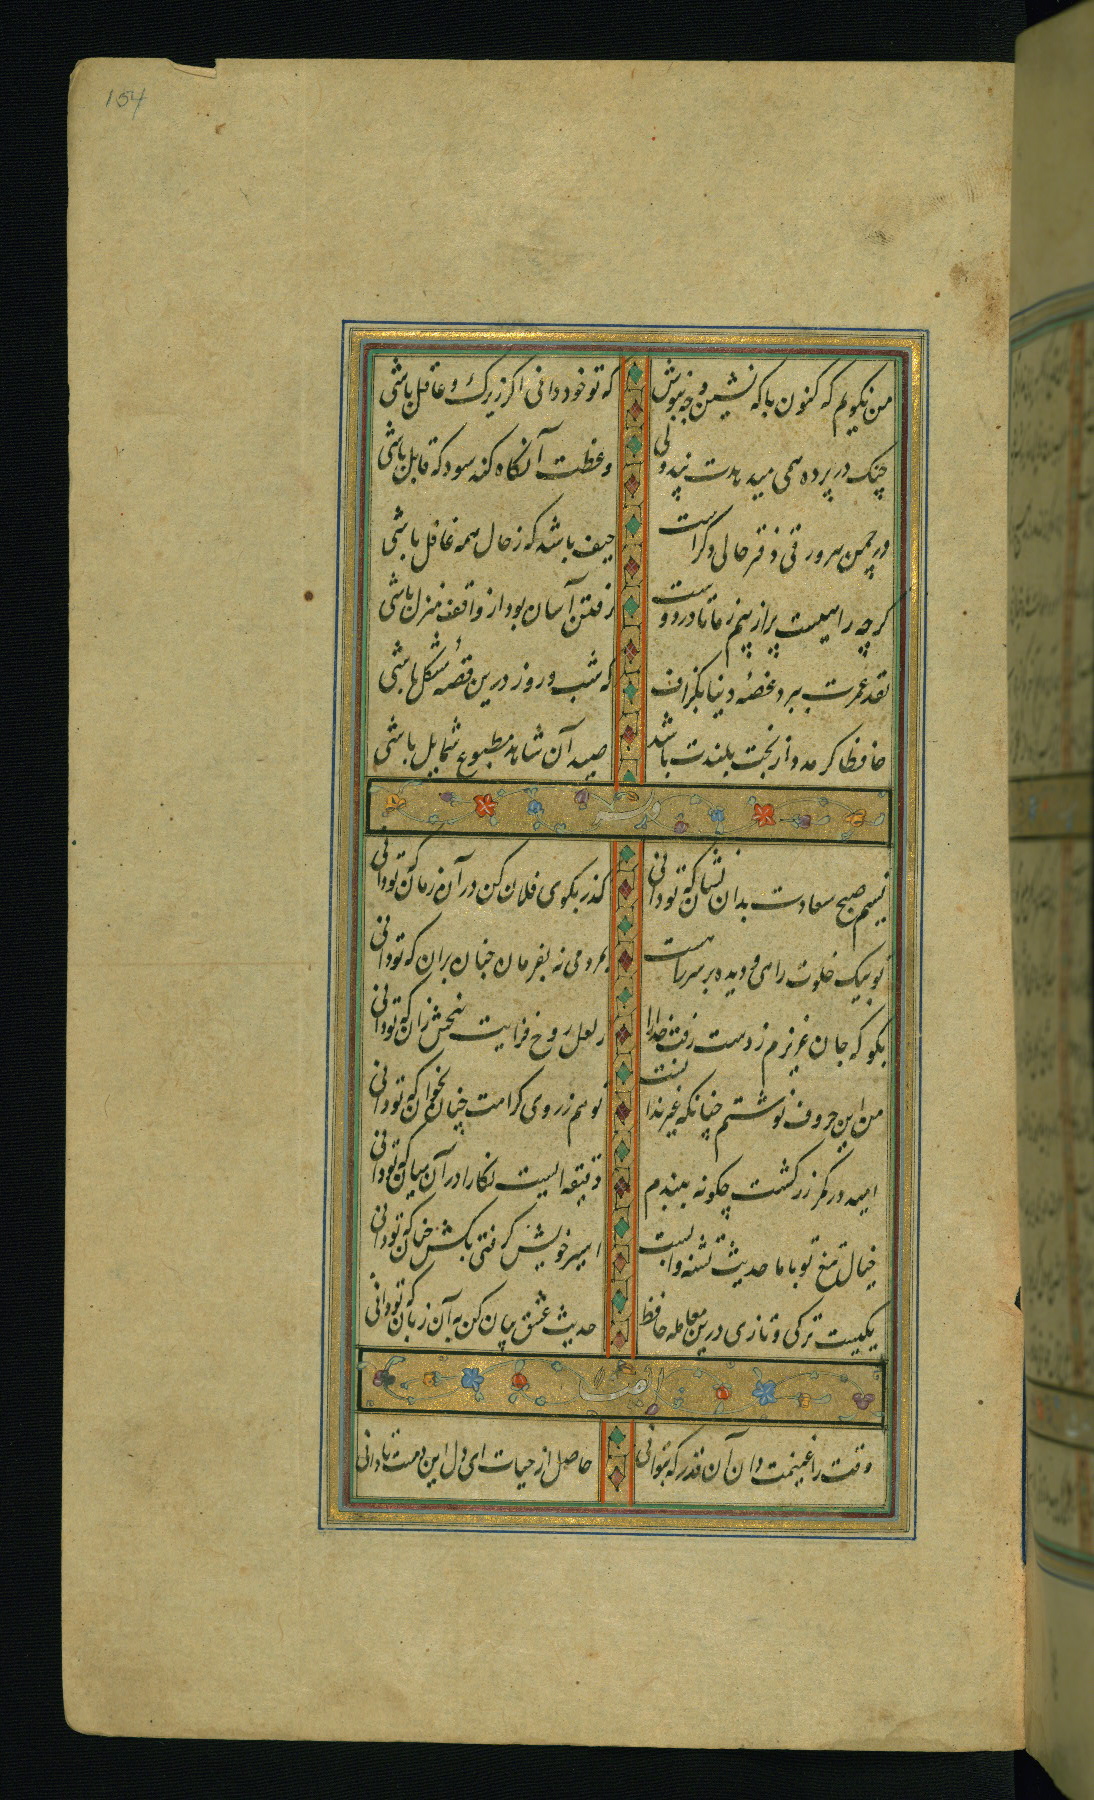 154
من نگویم که کنون با که نشین و چه بنوش که تو خود دانی اگر زیرک و عاقل باشی
چنگ در پرده همی میدهدت پند ولی وعظت آنگاه کند سود که قابل باشی
در چمن هر ورقی دفتر حالی دگر است حیف باشد که ز حال همه غافل باشی
گرچه راهیست پر از بیم ز ما تا در دوست رفتن آسان بود از واقف منزل باشی
نقد عمرت ببرد غصهٔ دنیا بگزاف که شب و روز درین قصهٔ مشکل باشی
حافظا گر مدد از بخت بلندت باشد صید آن شاهد مطبوع شمایل باشی
نسیم صبح سعادت بدان نشان که تو دانی گذر بکوی فلان کن در آن زمان که تو دانی
تو پیک خلوت رازی و دیده بر سر راهت بمردمی نه بفرمان چنان بران که تو دانی
بگو که جان عزیزم ز دست رفت خدا را ز لعل روح فزایت ببخش ز آن که تو دانی
من این حروف نوشتم چنانکه غیر ندانست تو هم ز روی کرامت چنان بخوان که تو دانی
امید در کمر زرکشت چگونه ببندم دقیقه ایست نگارا در آن میان که تو دانی
خیال تیغ تو با ما حدیث تشنه و آبست اسیر خویش گرفتی بکش چنان که تو دانی
یکیست ترکی و تازی درین معامله حافظ حدیث عشق بیان کن به آن زبان که تو دانی
ایضا
وقت را غنیمت دان آن قدر که بتوانی حاصل از حیات ای دل این دمست تا دانی